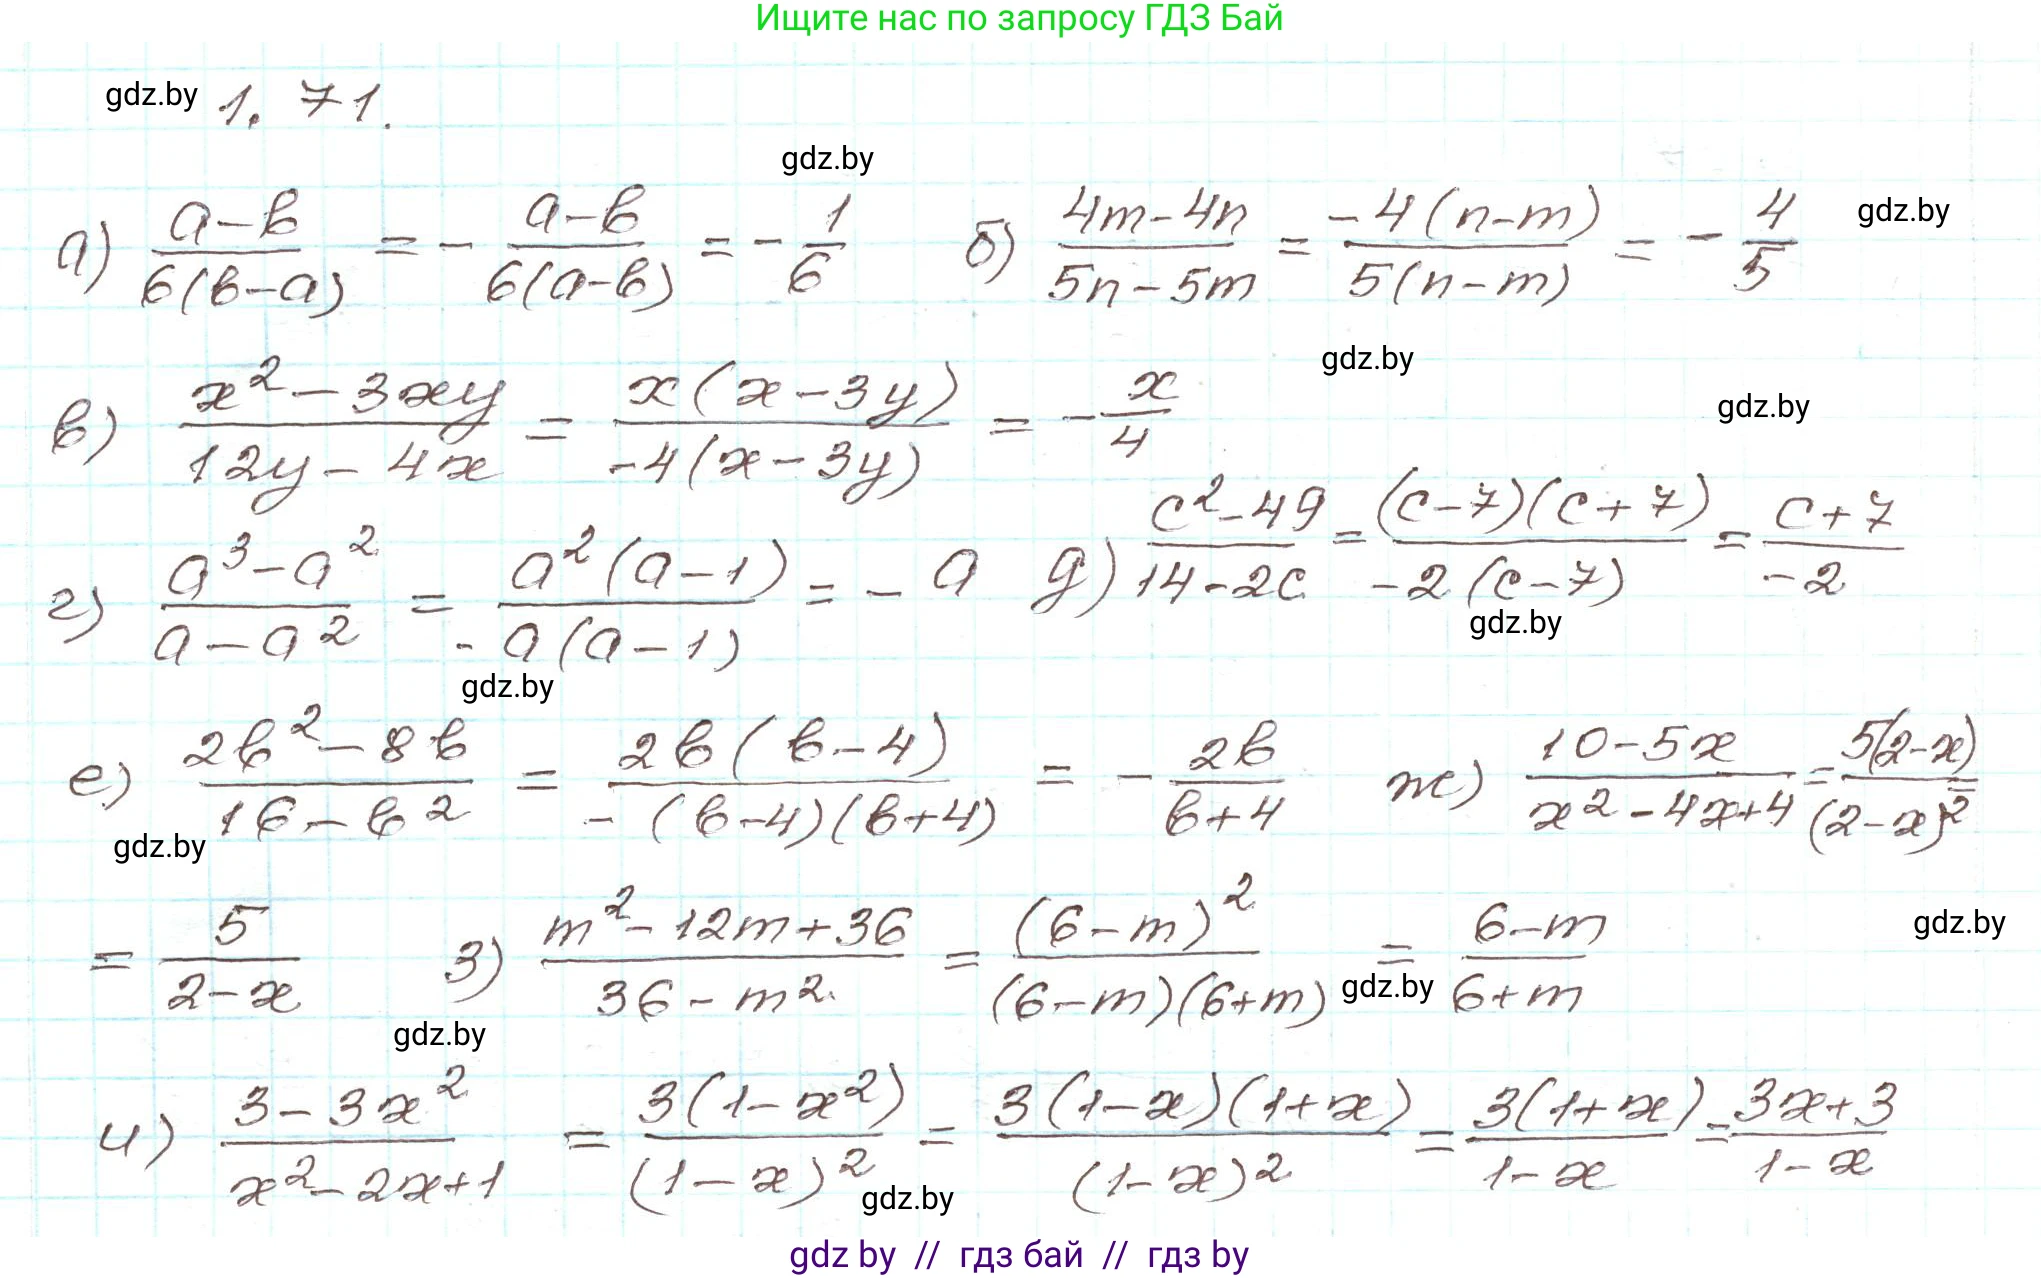 Ищите нас по запросу ГДЗ Бай
gdz.by 1.71.
gdz.by
а) (a-b)/(6(b-a)) = - (a-b)/(6(a-b)) = - 1/6 б) (4m-4n)/(5n-5m) = (-4(n-m))/(5(n-m)) = - 4/5 gdz.by
gdz.by
gdz.by
в) (x²-3xy)/(12y-4x) = (x(x-3y))/(-4(x-3y)) = - x/4
г) (a³-a²)/(a-a²) = (a²(a-1))/(-a(a-1)) = - a д) (c²-49)/(14-2c) = ((c-7)(c+7))/(-2(c-7)) = (c+7)/(-2)
gdz.by
gdz.by
е) (2b²-8b)/(16-b²) = (2b(b-4))/(-(b-4)(b+4)) = - 2b/(b+4) ж) (10-5x)/(x²-4x+4) = (5(2-x))/((2-x)²) =
gdz.by
= 5/(2-x) з) (m²-12m+36)/(36-m²) = ((6-m)²)/((6-m)(6+m)) = (6-m)/(6+m) gdz.by
gdz.by
gdz.by
и) (3-3x²)/(x²-2x+1) = (3(1-x²))/((1-x)²) = (3(1-x)(1+x))/((1-x)²) = (3(1+x))/(1-x) = (3x+3)/(1-x)
gdz.by
gdz by // гдз бай // гдз by